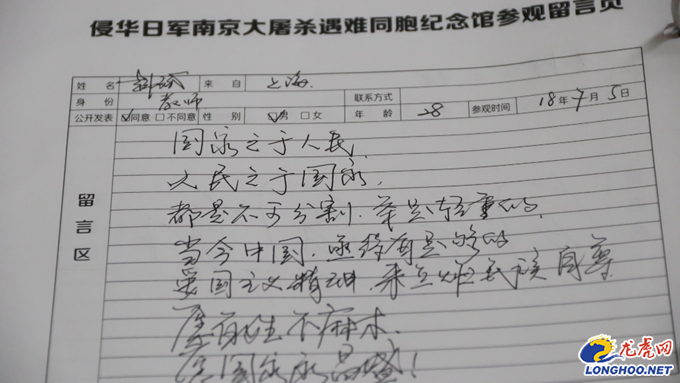 侵华日军南京大屠杀遇难同胞纪念馆参观留言页
姓名 来自 上海
身份 教师 联系方式
公开发表 ☑同意 □不同意 性别 ☑男 □女 年龄 28 参观时间 18年7月5日
留言区
国家之于人民
人民之于国家,
都是不可分割.
当今中国.
爱国主义精神. 民族自尊
不麻木.
国家永昌盛!
龙虎网
LONGHOO.NET